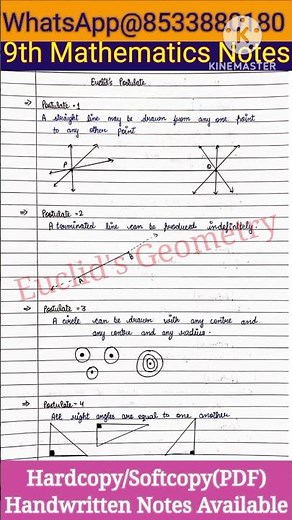 WhatsApp@85338
80
9th Mathematics Notes
KINEMASTER
Euclid's Postulate
⇒ Postulate - 1
A straight line may be drawn from any one point
to any other point
P
O
⇒ Postulate - 2
A terminated line can be produced indefinitely.
B
A
Euclid's Geometry
⇒ Postulate - 3
A circle can be drawn with any centre and
any centre and any radius.
⇒ Postulate - 4
All right angles are equal to one another
Hardcopy/Softcopy(PDF)
Handwritten Notes Available